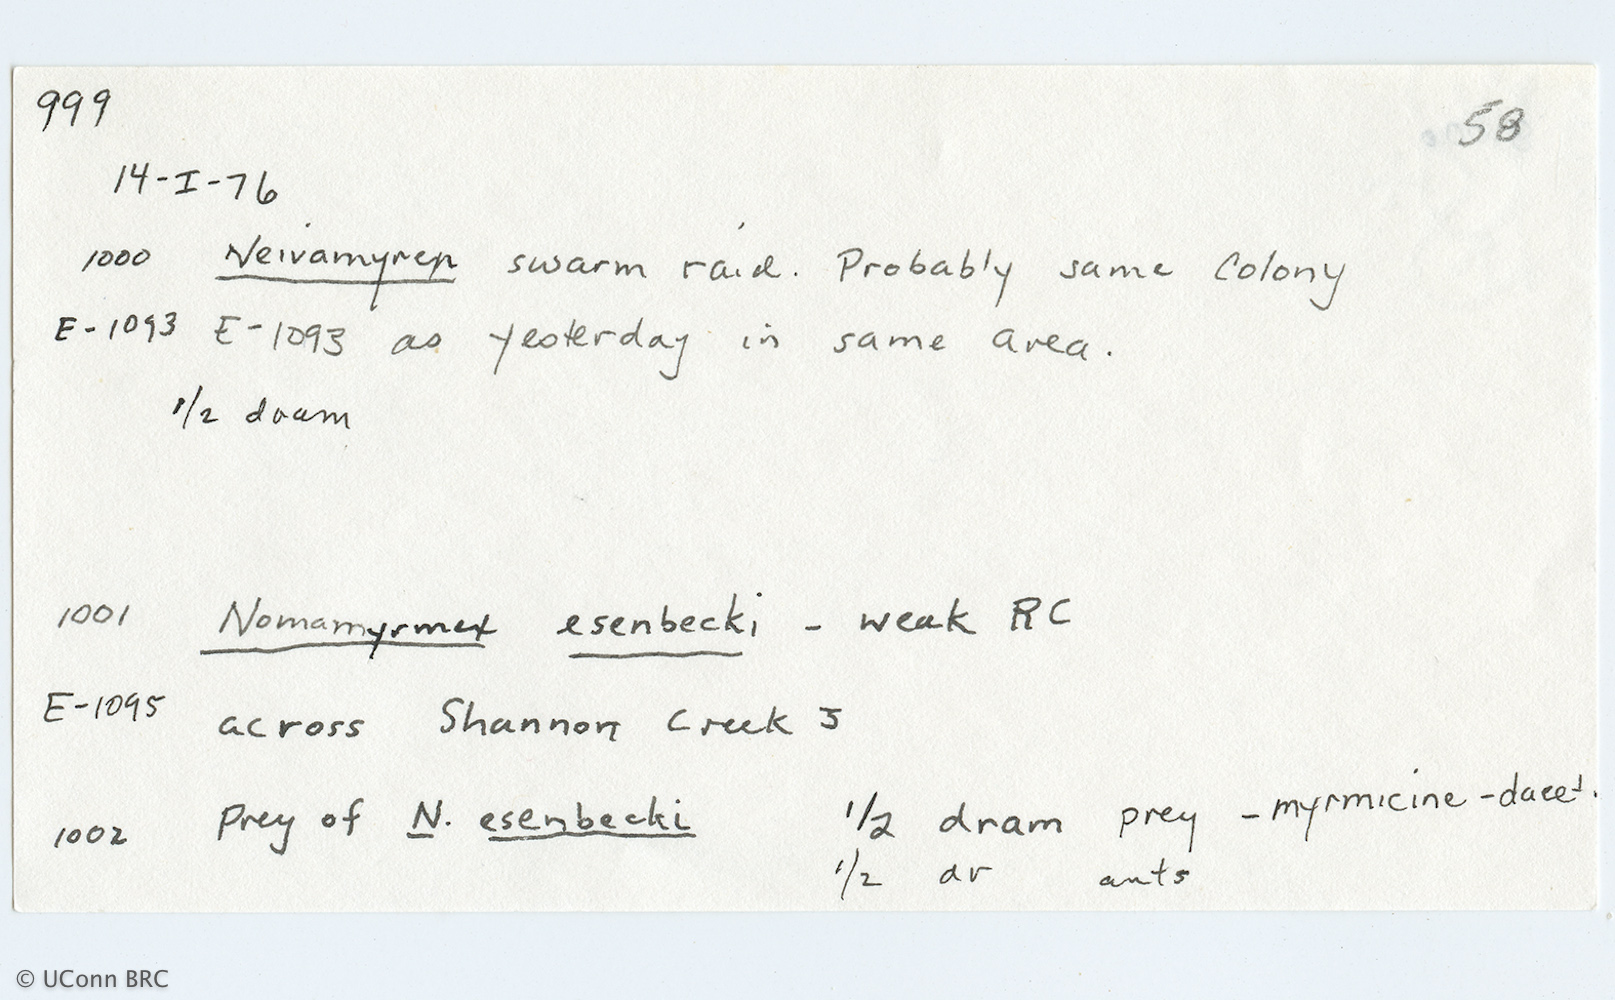 999
58
14-I-76
1000 Neivamyrep swarm raid. Probably same Colony
E-1093 E-1093 as yesterday in same area.
1/2 dram
1001 Nomamyrmex esenbecki - weak RC
E-1095 across Shannon Creek 5
1002 Prey of N. esenbecki 1/2 dram prey - myrmicine -
1/2 dr ants
© UConn BRC